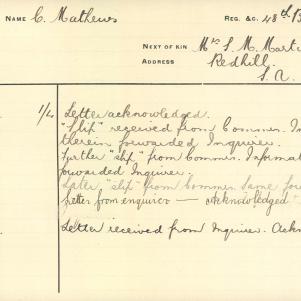 NAME C. Mathews REG. &C. 48th B
NEXT OF KIN Mrs L. M. Marti
ADDRESS Redhill,
S. A.
1/4 Letter acknowledged.
"Slip" received from Commrs. In
therein forwarded Inquirer.
Further "slip" from Commrs. Informat
forwarded Inquirer.
Later "slip" from Commrs. same for
Letter from enquirer — Acknowledged
Letter received from Inquirer. Ackn